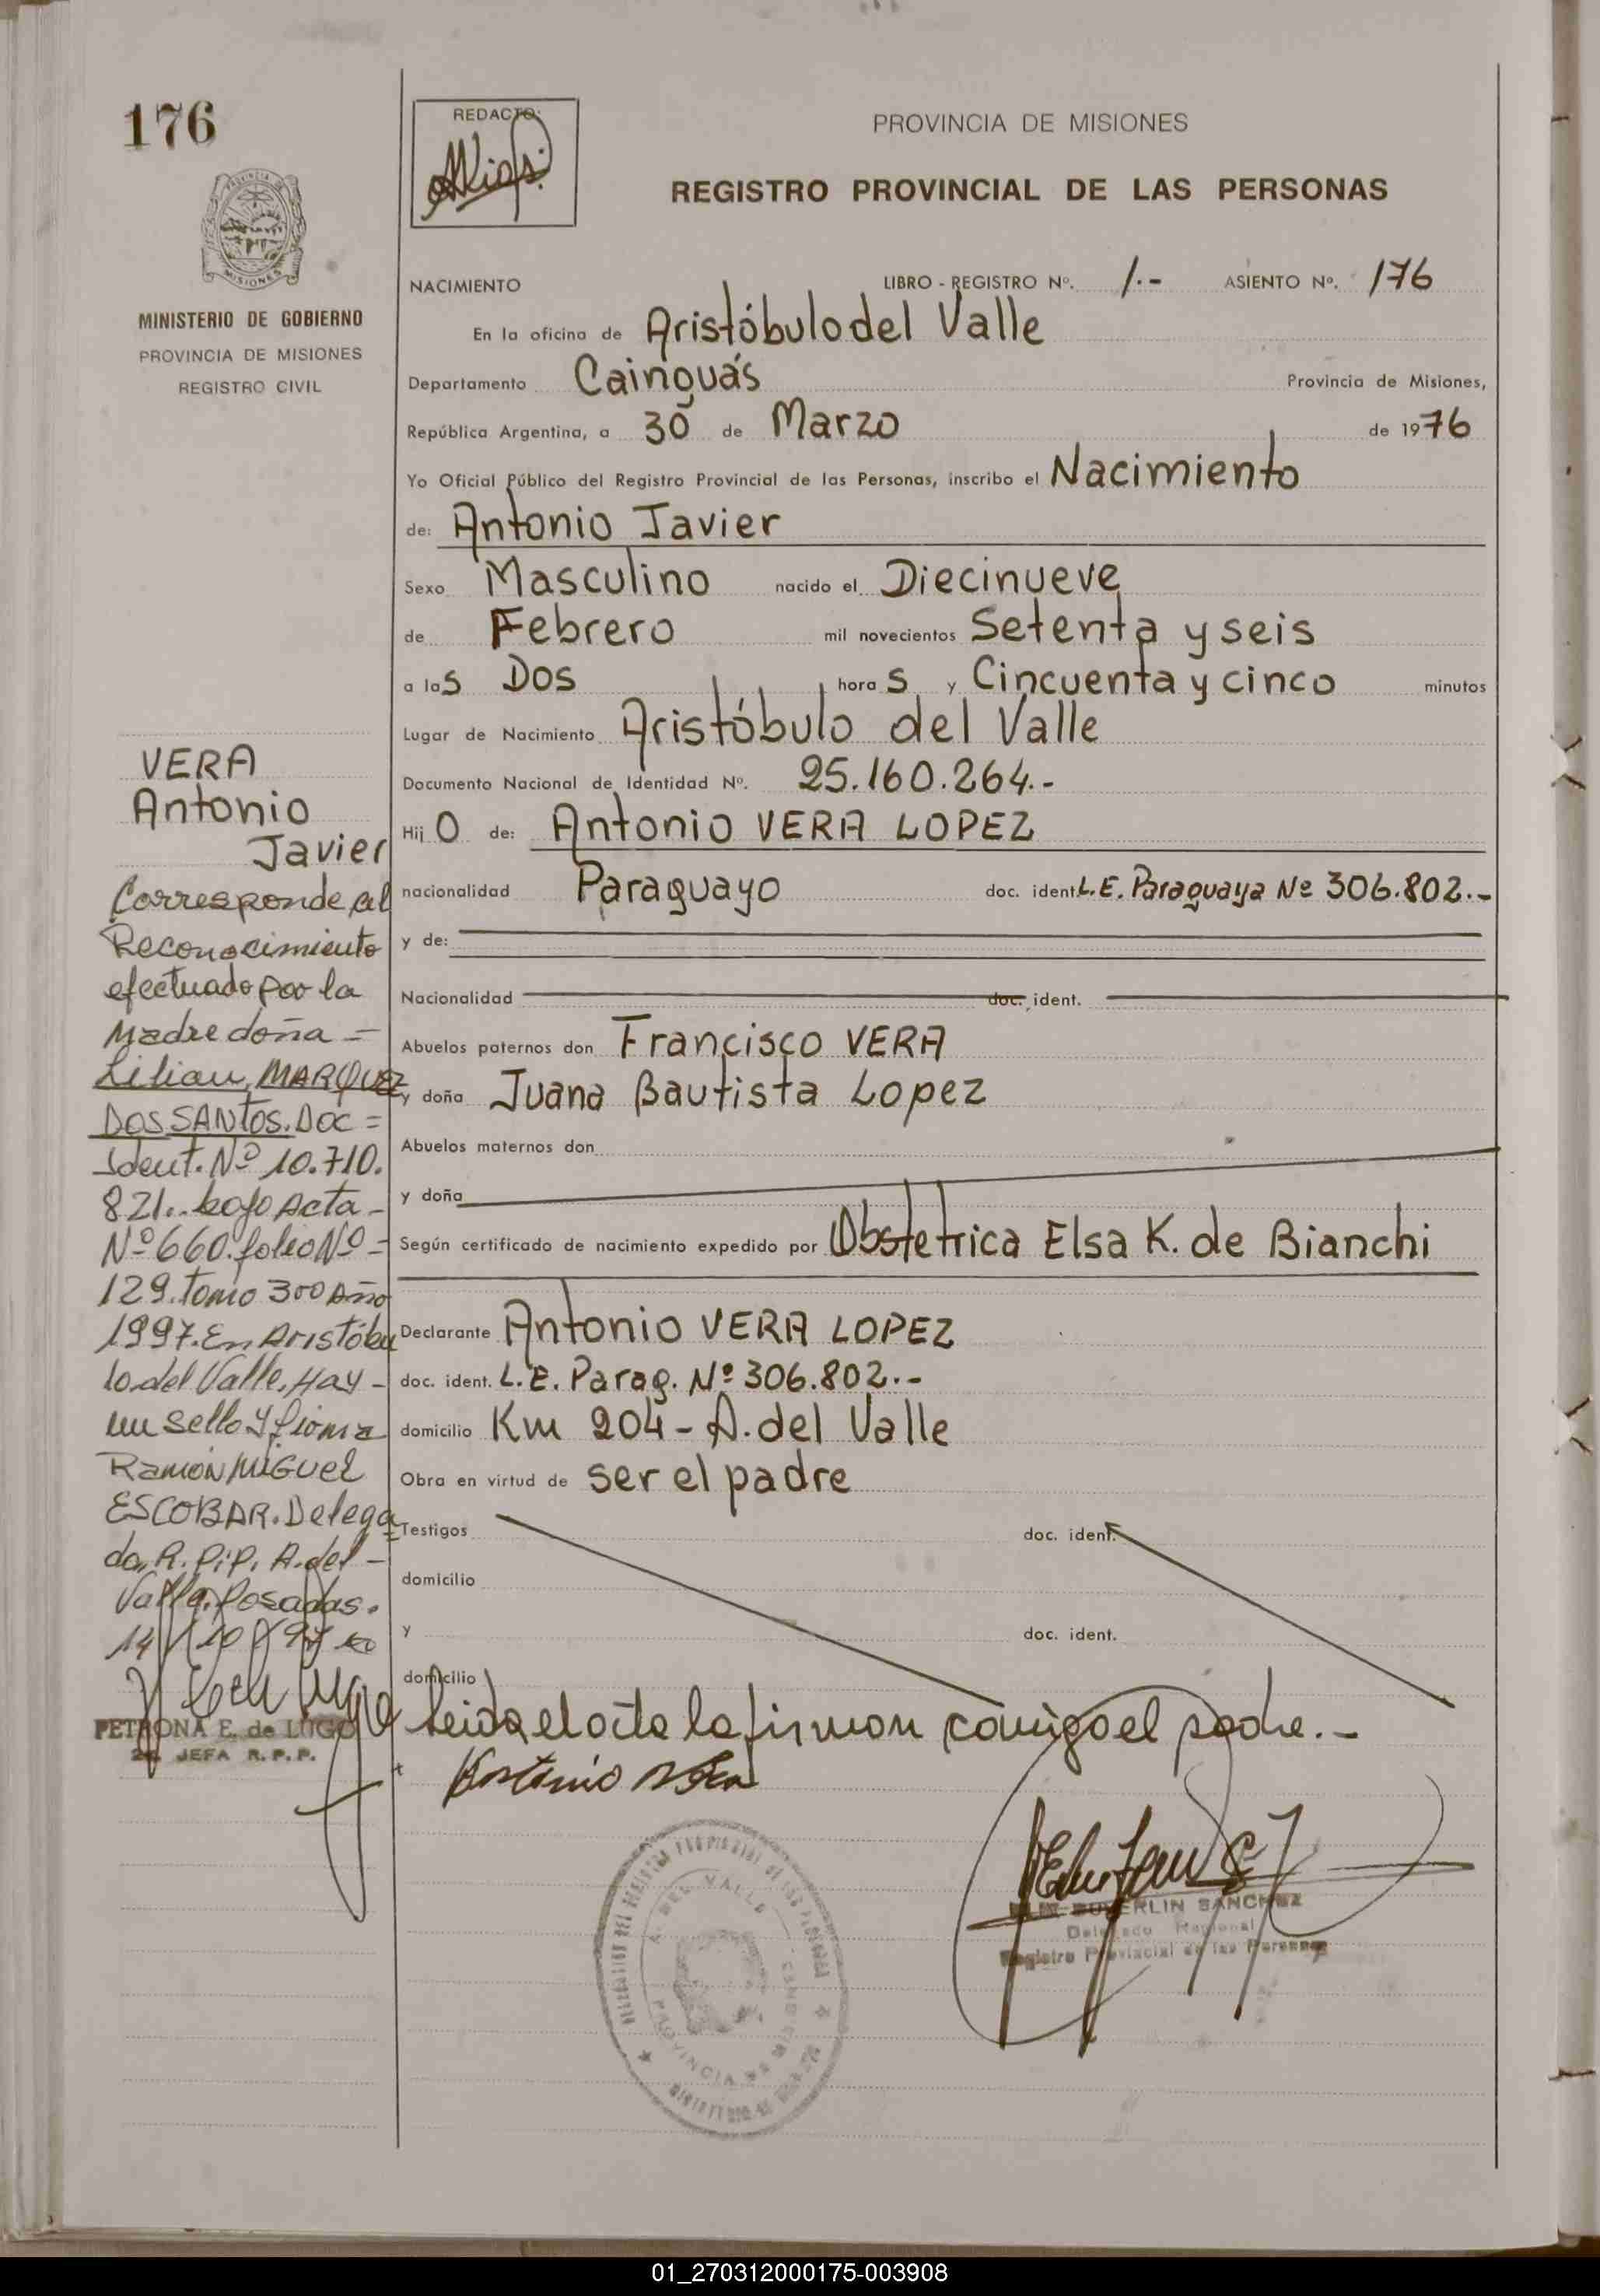 176
REDACTO:
PROVINCIA DE MISIONES
REGISTRO PROVINCIAL DE LAS PERSONAS
PROVINCIA DE
MISIONES
MINISTERIO DE GOBIERNO
PROVINCIA DE MISIONES
REGISTRO CIVIL
NACIMIENTO LIBRO - REGISTRO Nº. 1.- ASIENTO Nº. 176
En la oficina de Aristóbulo del Valle
Departamento Cainguás Provincia de Misiones,
República Argentina, a 30 de Marzo de 1976
Yo Oficial Público del Registro Provincial de las Personas, inscribo el Nacimiento
de: Antonio Javier
Sexo Masculino nacido el Diecinueve
de Febrero mil novecientos Setenta y seis
a las Dos horas y Cincuenta y cinco minutos
Lugar de Nacimiento Aristóbulo del Valle
Documento Nacional de Identidad Nº. 25.160.264.-
Hijo de: Antonio VERA LOPEZ
nacionalidad Paraguayo doc. ident. L.E. Paraguaya Nº 306.802.-
y de:
Nacionalidad doc. ident.
Abuelos paternos don Francisco VERA
y doña Juana Bautista Lopez
Abuelos maternos don
y doña
Según certificado de nacimiento expedido por Obstetrica Elsa K. de Bianchi
Declarante Antonio VERA LOPEZ
doc. ident. L.E. Parag. Nº 306.802.-
domicilio Km 204 - A. del Valle
Obra en virtud de ser el padre
Testigos doc. ident.
domicilio
y doc. ident.
domicilio
Leida el acta la firman conmigo el padre.-
Antonio Vera
SANCHEZ
Delegado Regional
Registro Provincial de las Personas
A. DEL VALLE
PROVINCIA DE MISIONES
VERA
Antonio
Javier
Corresponde al
Reconocimiento
efectuado por la
Madre doña =
Lilian, MARQUEZ
DOS SANTOS. DOC =
Ident. Nº 10.710.
821.. bajo Acta -
Nº 660. folio Nº =
129. Tomo 300 Año
1997. En Aristóbu
lo del Valle. Hay -
un sello y firma
Ramón Miguel
ESCOBAR. Delega
do, R. P. P. A. del -
Valle. Posadas.
14/10/97
PETRONA E. de LUGO
JEFA R. P. P.
01_270312000175-003908